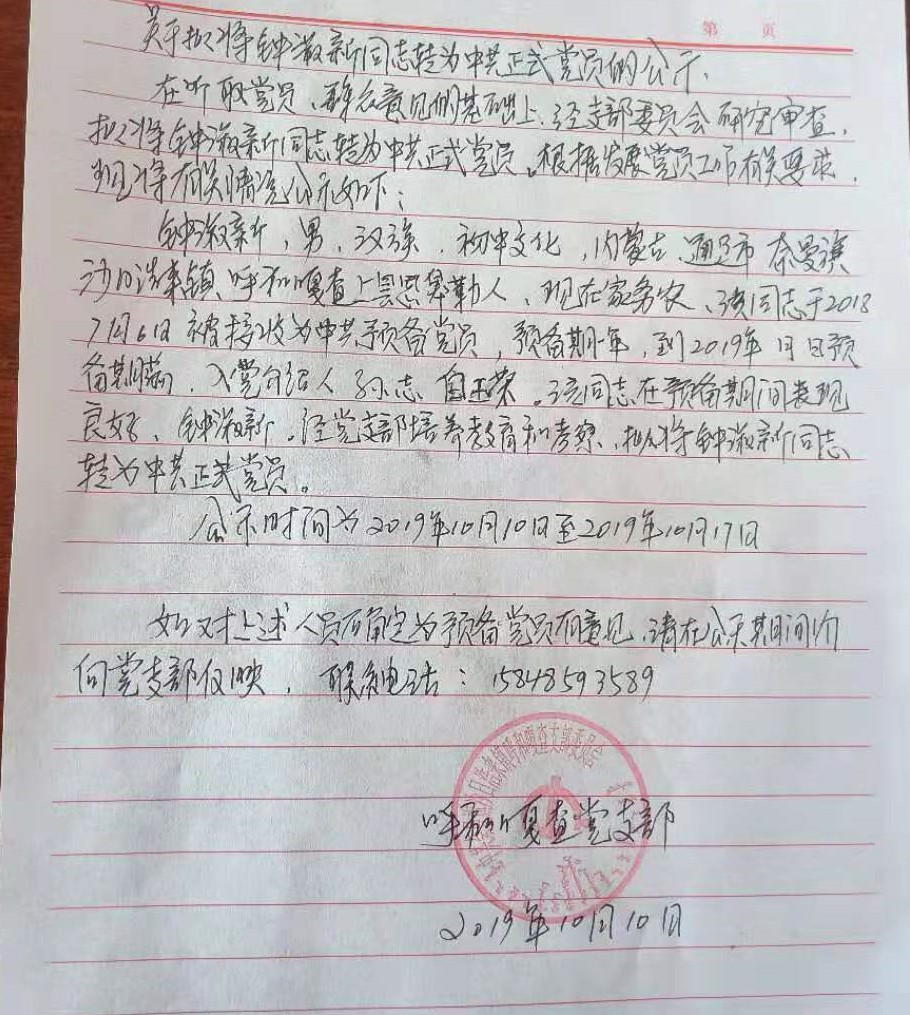 第 页
关于拟将钟淑新同志转为中共正式党员的公示、
在听取党员、群众意见的基础上、经支部委员会研究审查，
拟将钟淑新同志转为中共正式党员。根据发展党员工作有关要求，
现将有关情况公示如下：
钟淑新，男，汉族、初中文化，内蒙古通辽市奈曼旗
沙日浩来镇呼和嘎查上 勒人、现在家务农、该同志于2018
7月6日被接收为中共预备党员，预备期一年，到2019年 月 日预
备期满，入党介绍人 孙志 白玉荣。该同志在预备期间表现
良好、钟淑新。经党支部培养教育和考察、拟将钟淑新同志
转为中共正式党员。
公示时间为2019年10月10日至2019年10月17日
如对上述人员确定为预备党员有意见，请在公示期间内
向党支部反映，联系电话：15848593589
呼和嘎查党支部
2019年10月10日